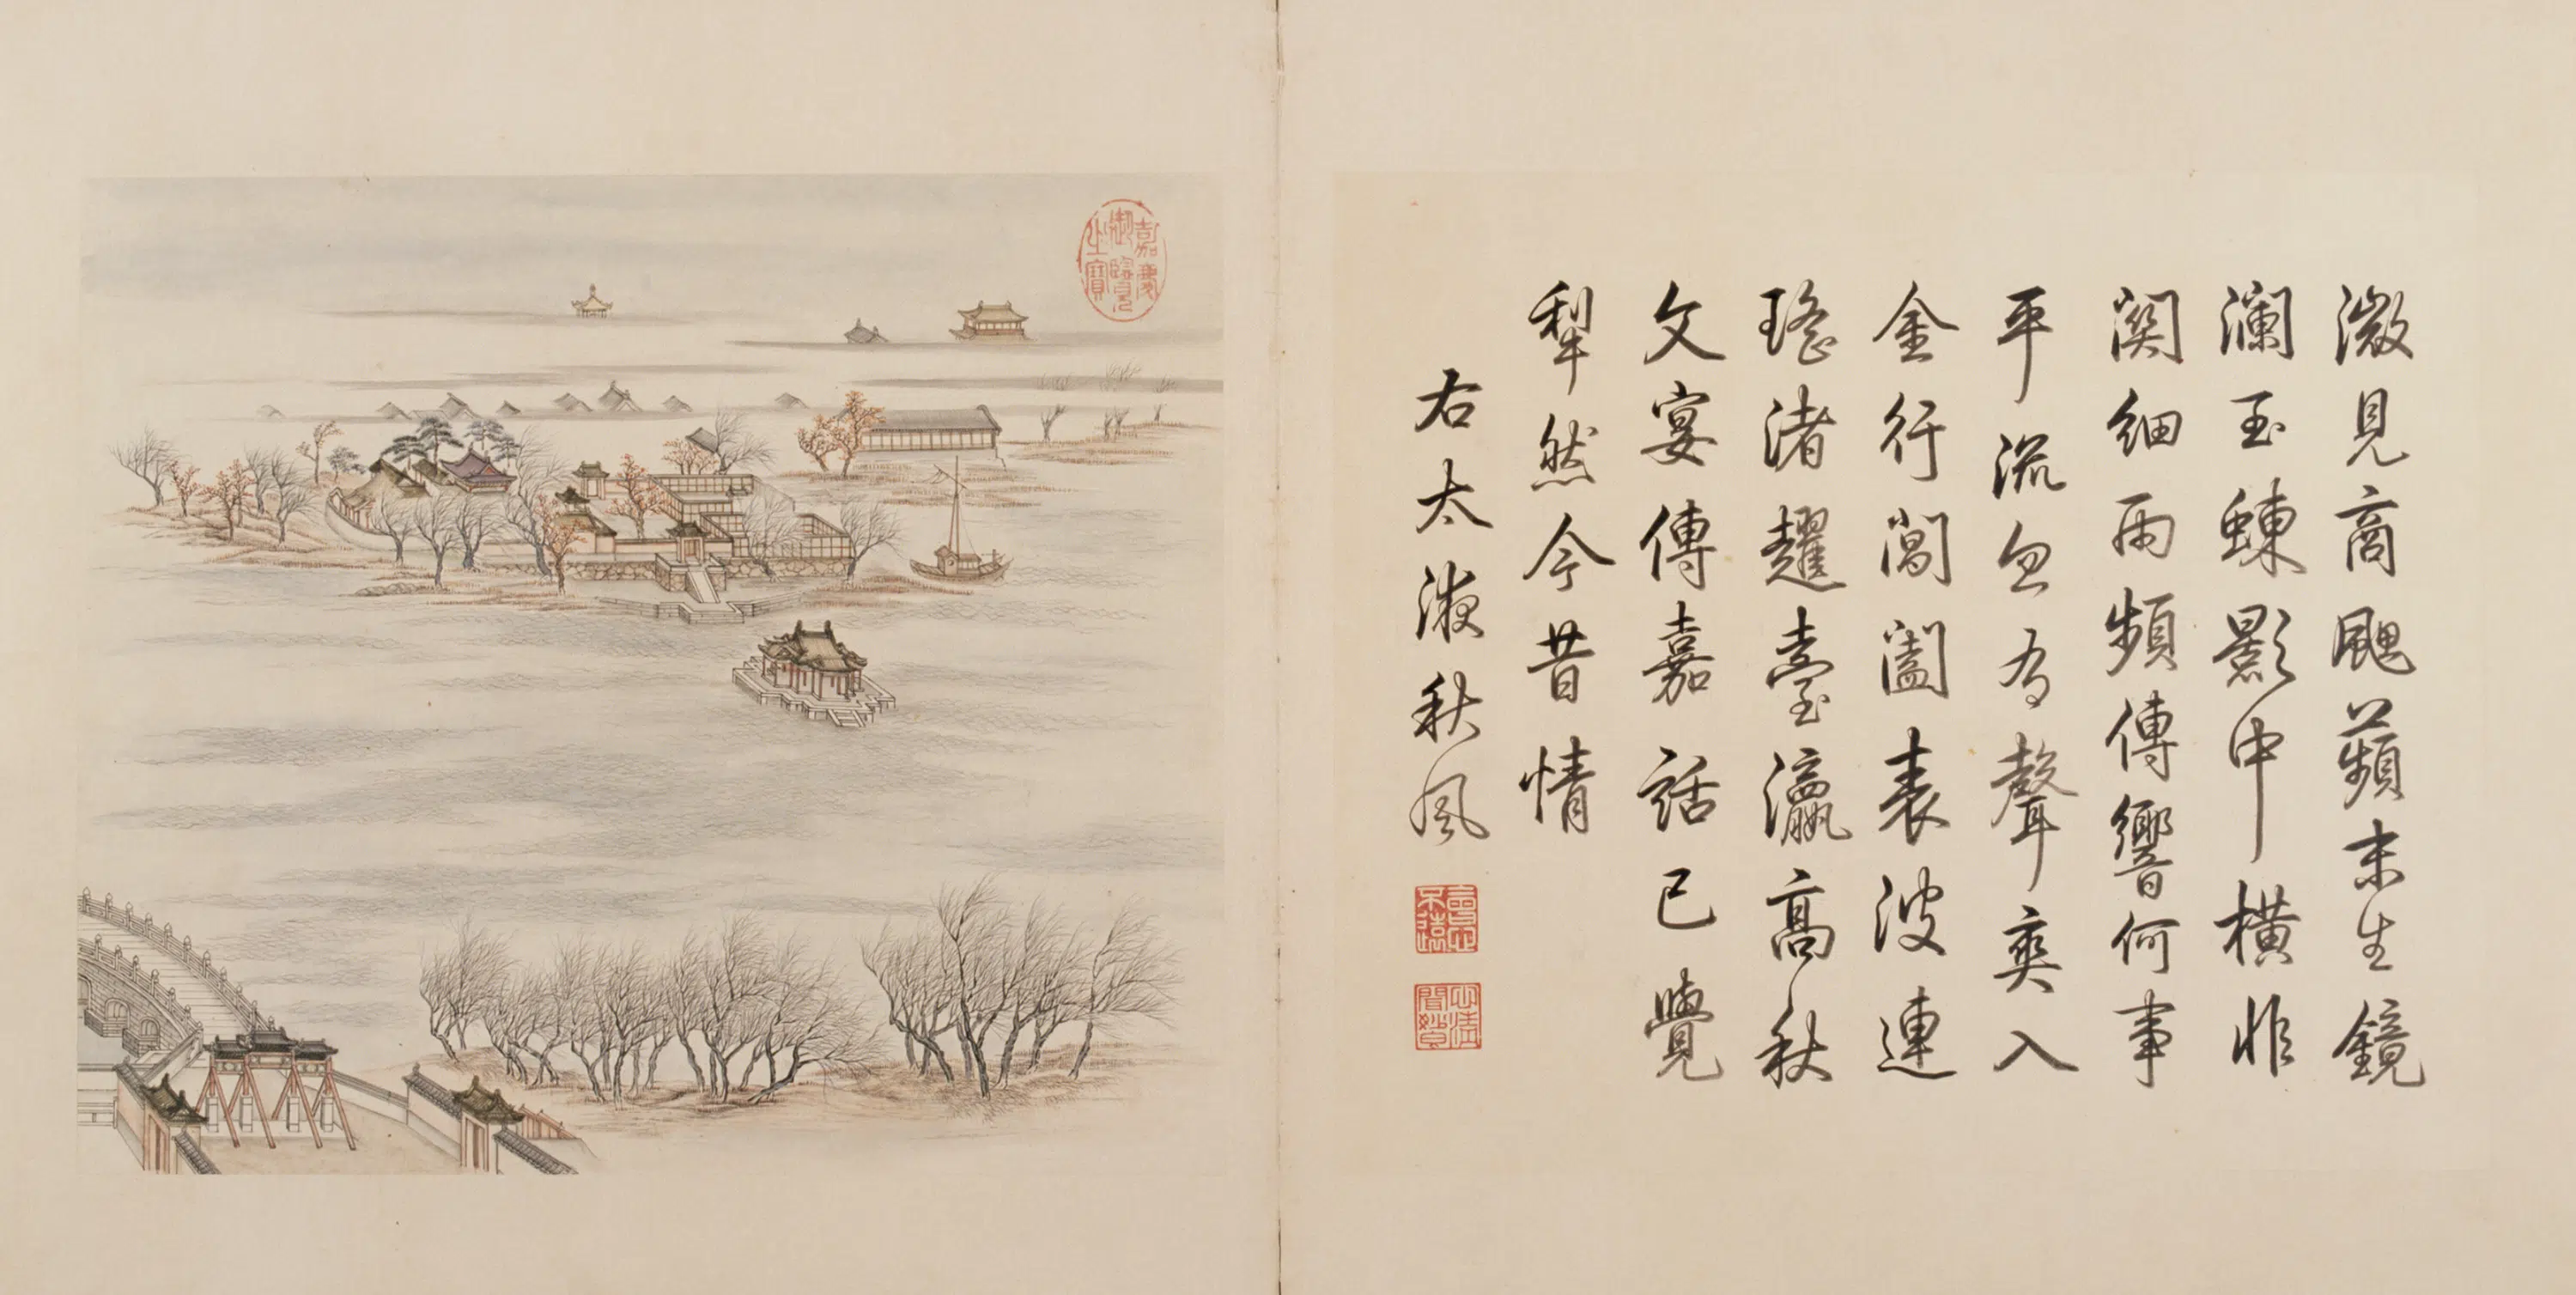 微見商颸蘋末生鏡
瀾玉蝀影中橫非
関細雨頻傳響何事
平流忽有聲爽入
金行閶闔表波連
瑤渚趯臺瀛高秋
文宴傳嘉話已覺
犂然今昔情
右太液秋風
會心不遠
心清聞妙香
嘉慶御覽之寶